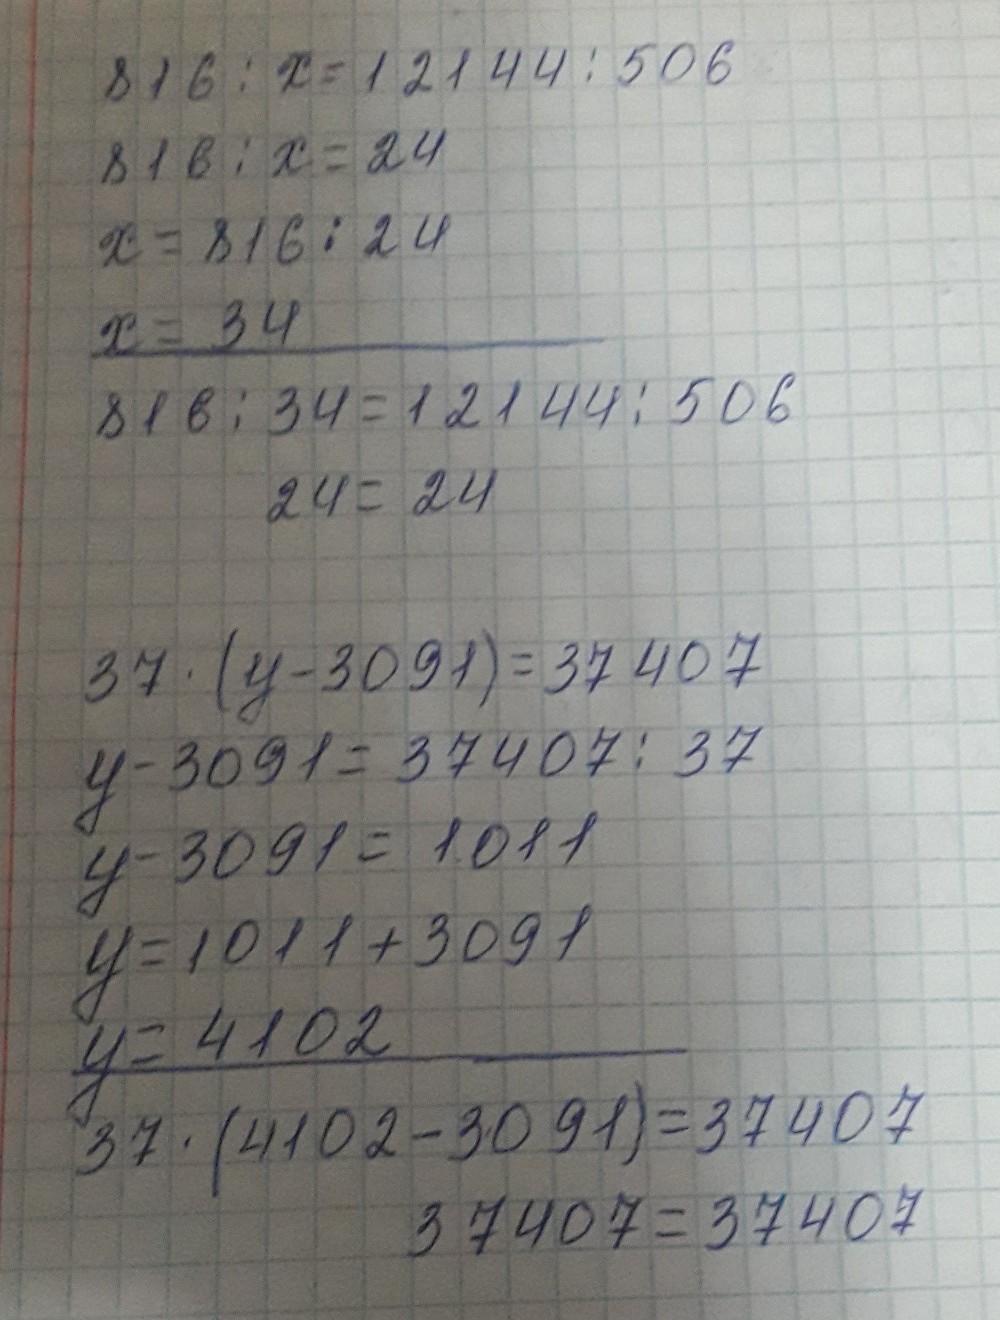 816 : x = 12144 : 506
816 : x = 24
x = 816 : 24
x = 34
816 : 34 = 12144 : 506
24 = 24
37 · (y - 3091) = 37407
y - 3091 = 37407 : 37
y - 3091 = 1011
y = 1011 + 3091
y = 4102
37 · (4102 - 3091) = 37407
37407 = 37407